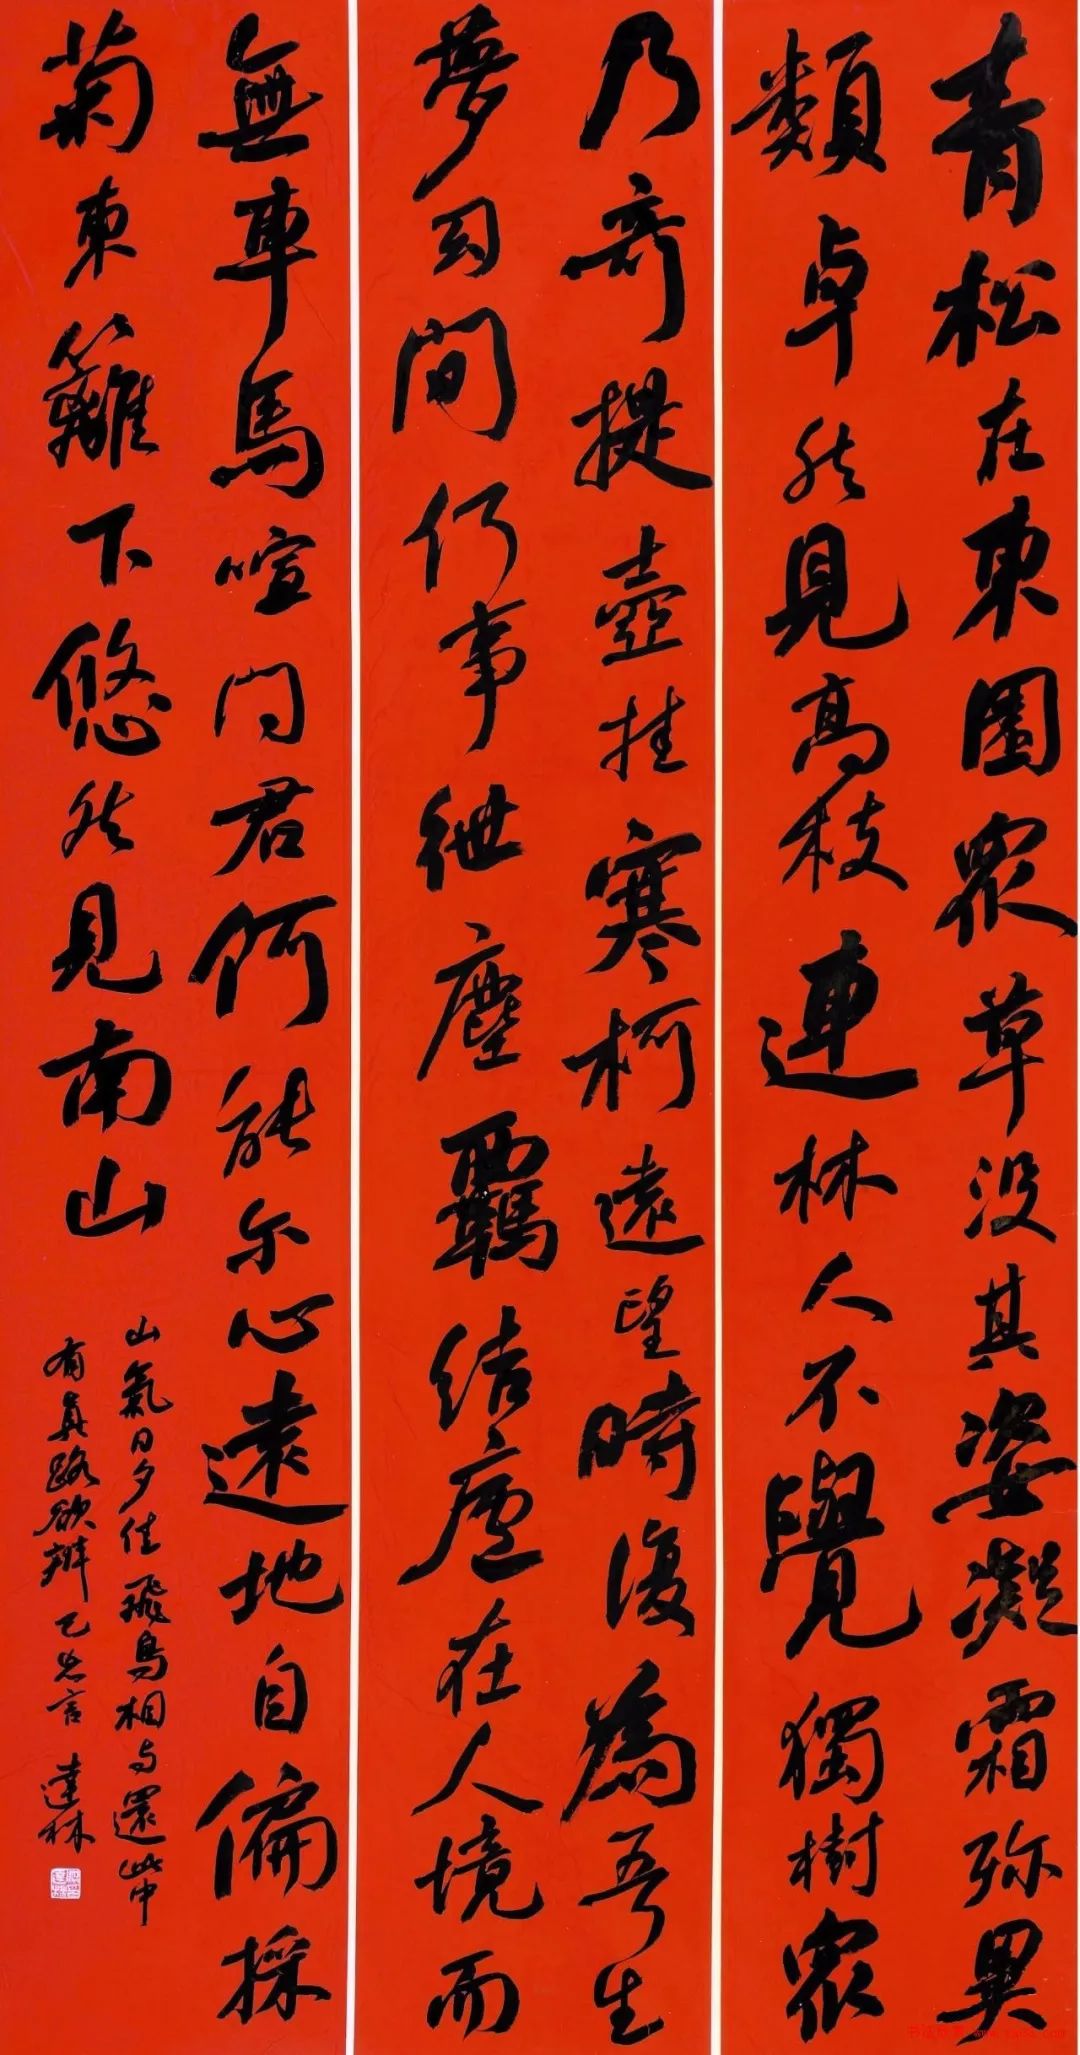 青松在東園眾草没其姿凝霜弥異
類卓然見高枝連林人不覺獨樹眾
乃奇提壺挂寒柯遠望時復為吾生
夢幻間仍事紲塵羈結廬在人境而
無車馬喧问君何能尔心遠地自偏採
菊東籬下悠然見南山
山氣日夕佳飛鳥相与還此中
有真路欲辨已忘言 達林